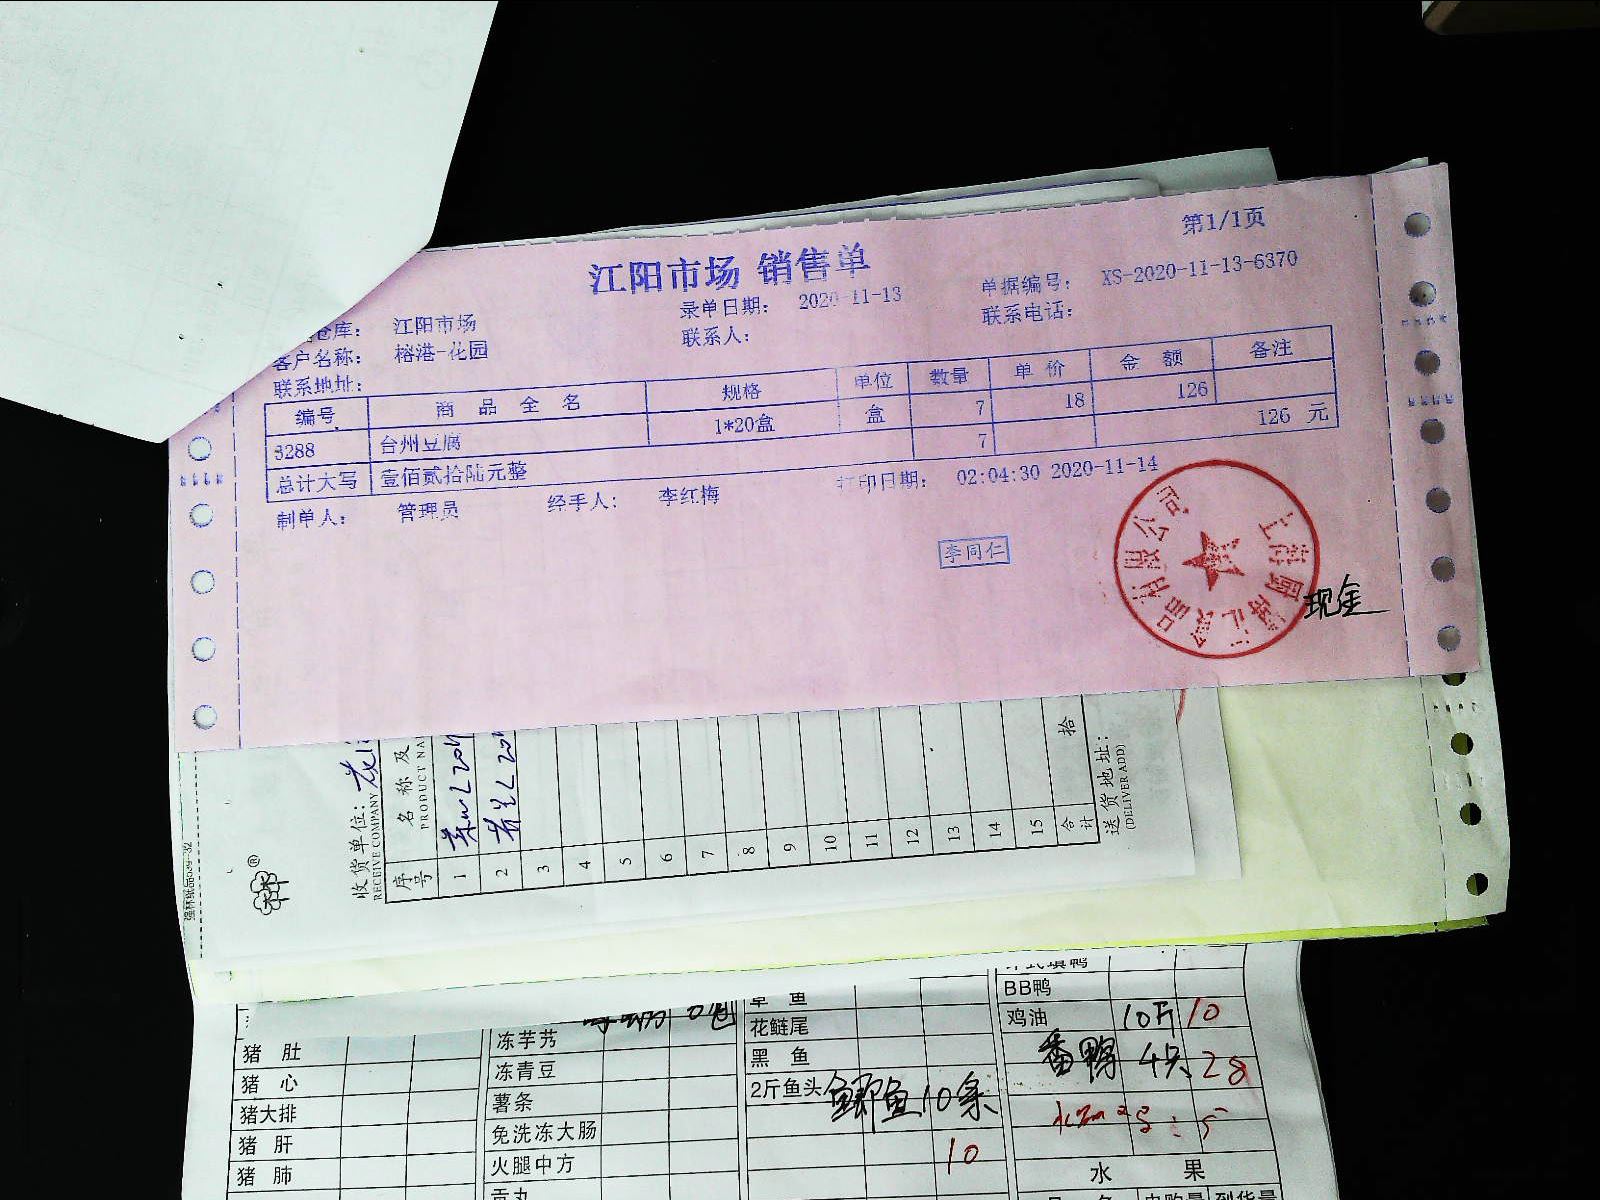 第1/1页
江阳市场 销售单
仓库： 江阳市场 录单日期： 2020-11-13 单据编号： XS-2020-11-13-6370
客户名称： 榕港-花园 联系人： 联系电话：
联系地址：
编号 商 品 全 名 规格 单位 数量 单 价 金 额 备注
3288 台州豆腐 1*20盒 盒 7 18 126
总计大写 壹佰贰拾陆元整 7 126 元
制单人： 管理员 经手人： 李红梅 打印日期： 02:04:30 2020-11-14
李同仁
有限公司
现金
收货单位：
RECEIVE COMPANY
序号 名 称 及
PRODUCT NA
1
2
3
4
5
6
7
8
9
10
11
12
13
14
15
合计 拾
送货地址：
(DELIVER ADD)
猪 肚
猪 心
猪大排
猪 肝
猪 肺
冻芋艿
冻青豆
薯条
免洗冻大肠
火腿中方
贡丸
草 鱼
花鲢尾
黑 鱼
2斤鱼头
鲫鱼10条
10
BB鸭
鸡油 10斤 10
番鸭 4只 28
水 果